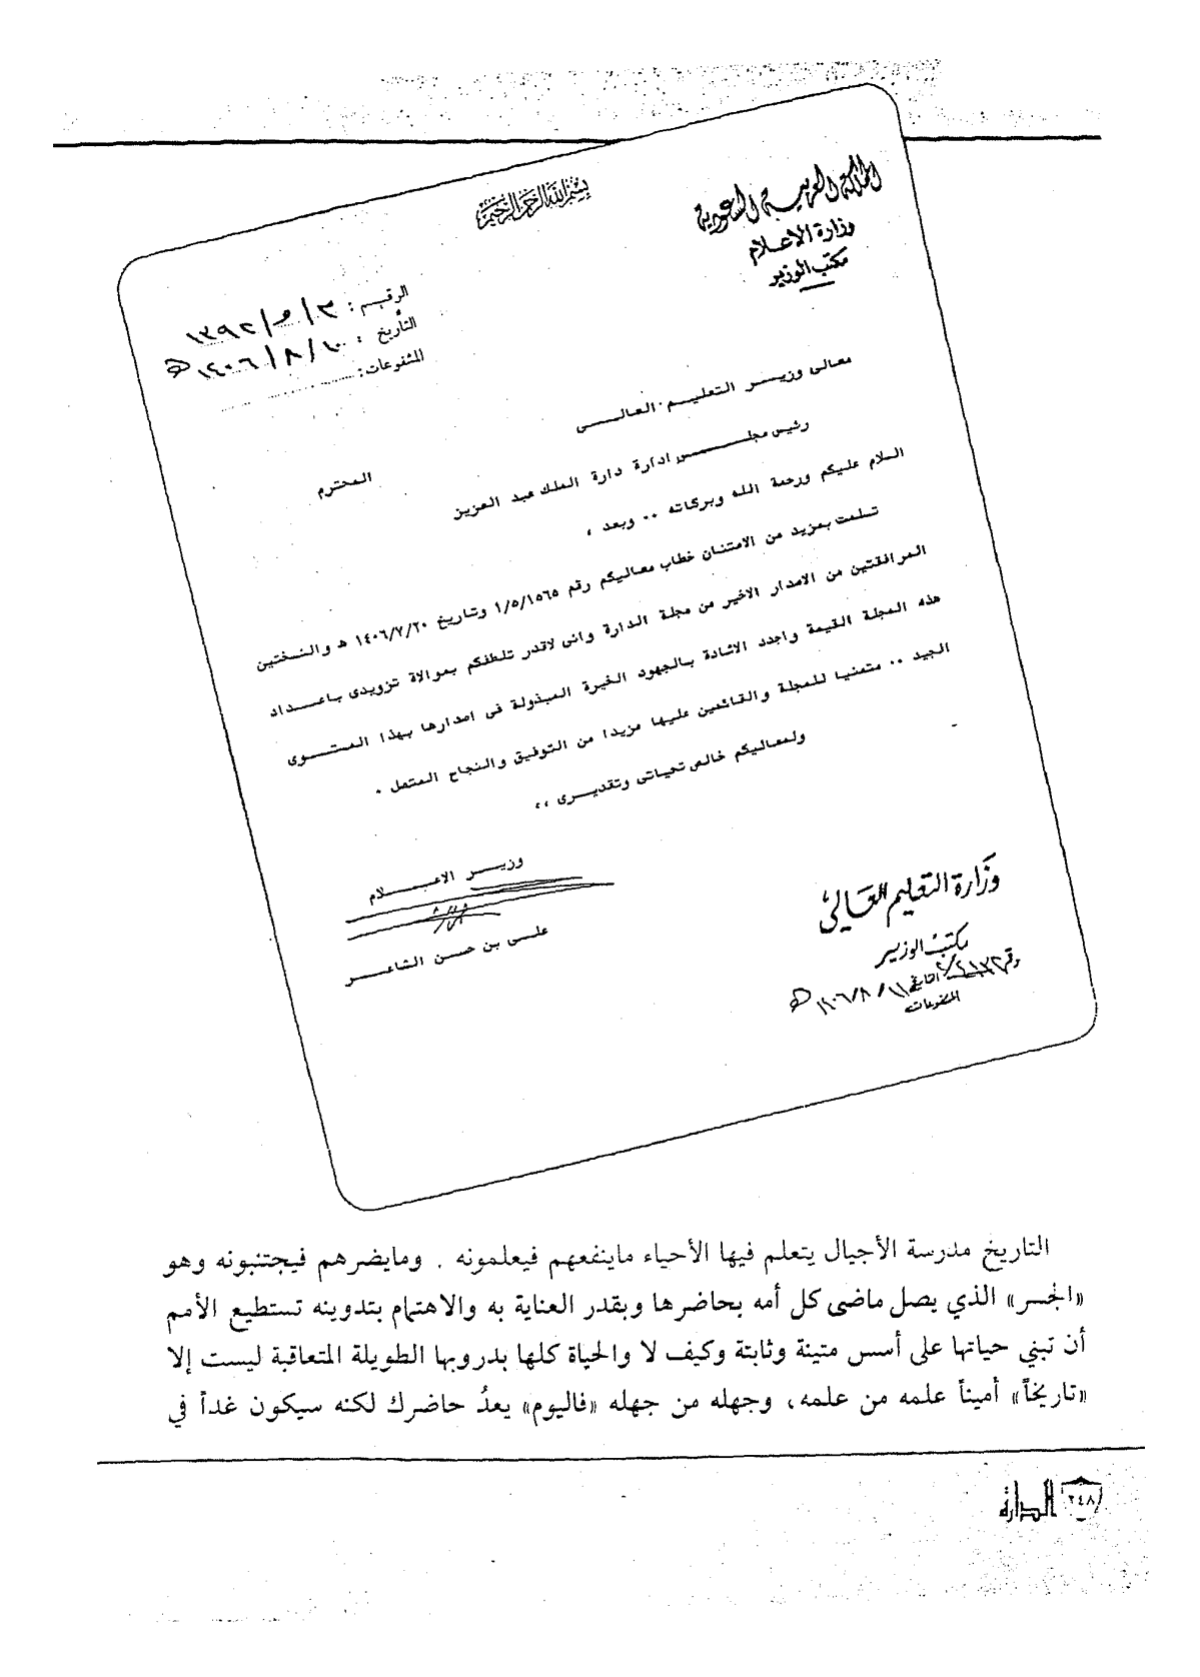 بسم الله الرحمن الرحيم
المملكة العربية السعودية
وزارة الاعلام
مكتب الوزير
الرقم : ١٣٩٢/م/٣
التاريخ : ١٤٠٦/٨/١٠ هـ
المشفوعات :
معالى وزير التعليم العالى
رئيس مجلس ادارة دارة الملك عبد العزيز
المحترم
السلام عليكم ورحمة الله وبركاته .. وبعد ،
تسلمت بمزيد من الامتنان خطاب معاليكم رقم ١/٥/١٥٦٥ وتاريخ ١٤٠٦/٧/٢٠ ه والنسختين
المرافقتين من الاصدار الاخير من مجلة الدارة وانى لاقدر تلطفكم بموالاة تزويدى باعداد
هذه المجلة القيمة واجدد الاشادة بالجهود الخيرة المبذولة فى اصدارها بهذا المستوى
الجيد .. متمنيا للمجلة والقائمين عليها مزيدا من التوفيق والنجاح المتصل .
ولمعاليكم خالص تحياتى وتقديرى ،،
وزير الاعلام
على بن حسن الشاعر
وزارة التعليم العالي
مكتب الوزير
التاريخ ١٤٠٦/٨/١١ هـ
المشفوعات
التاريخ مدرسة الأجيال يتعلم فيها الأحياء ماينفعهم فيعلمونه . ومايضرهم فيجتنبونه وهو
«الجسر» الذي يصل ماضى كل أمه بحاضرها وبقدر العناية به والاهتمام بتدوينه تستطيع الأمم
أن تبني حياتها على أسس متينة وثابتة وكيف لا والحياة كلها بدروبها الطويلة المتعاقبة ليست إلا
«تاريخاً» أميناً علمه من علمه، وجهله من جهله «فاليوم» يعدُ حاضرك لكنه سيكون غداً في
٢٤٨ الدارة